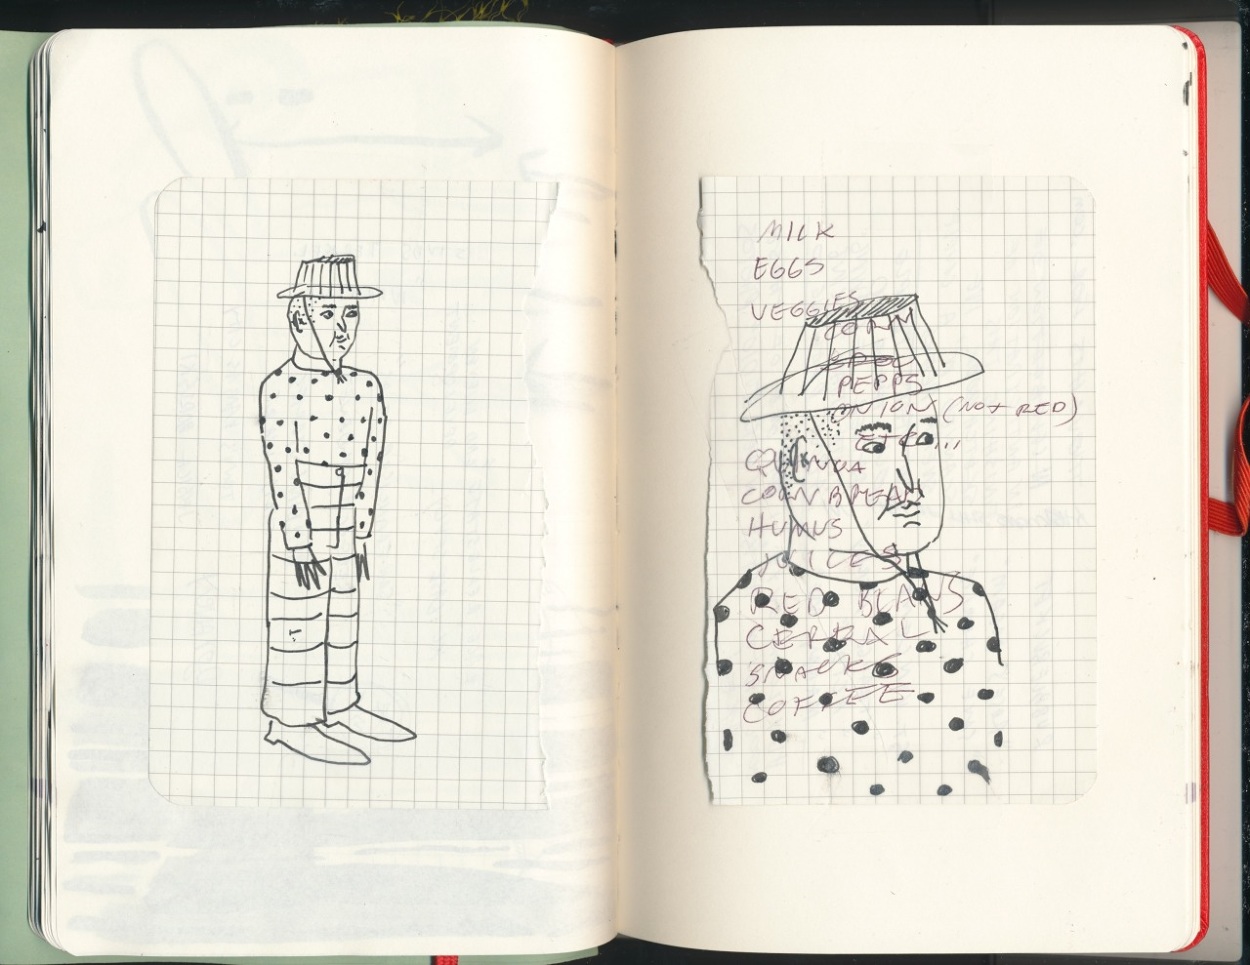 MILK
EGGS
VEGGIES
CORN
PEPPS
ONION (NOT RED)
ETC...
QUINOA
CORN BREAD
HUMUS
JUICES
RED BEANS
CEREAL
SNACKS
COFFEE